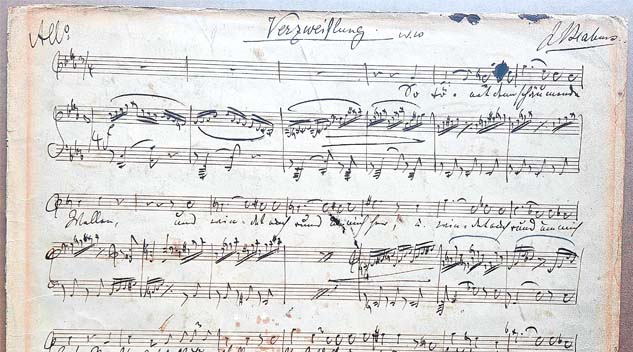 Allo Verzweiflung. No 10 J. Brahms.
So tö - net denn schäumende
Wellen, und win - det euch rund um mich her, u. win - det euch rund um mich